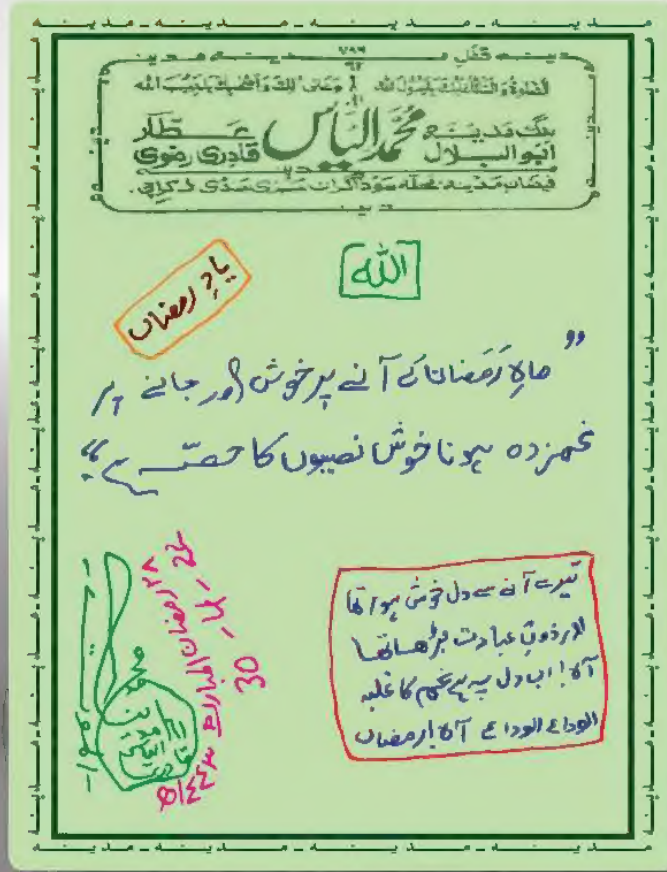 مدینہ قفل مدینہ
۷۸۶
۹۲
الصلوٰة والسلام علیک یارسول اللہ وعلیٰ الک واصحبک یاحبیب اللہ
سگ مدینہ محمد الیاس عطار
ابوالبلال قادری رضوی
فیضان مدینہ محلہ سوداگران سبزی منڈی کراچی
مدینہ
اللہ
یادِ رمضان
”ماہِ رَمَضان کے آنے پر خوش اور جانے پر
غمزدہ ہونا خوش نصیبوں کا حصّہ ہے“
تیرے آنے سے دل خوش ہوا تھا
اور ذوقِ عبادت بڑھا تھا
آہ! اب دل پہ ہے غم کا غلبہ
الوداع الوداع آہ! رمضاں
۲۸ رمضان المبارک ۱۴۴۳ھ
30-4-22